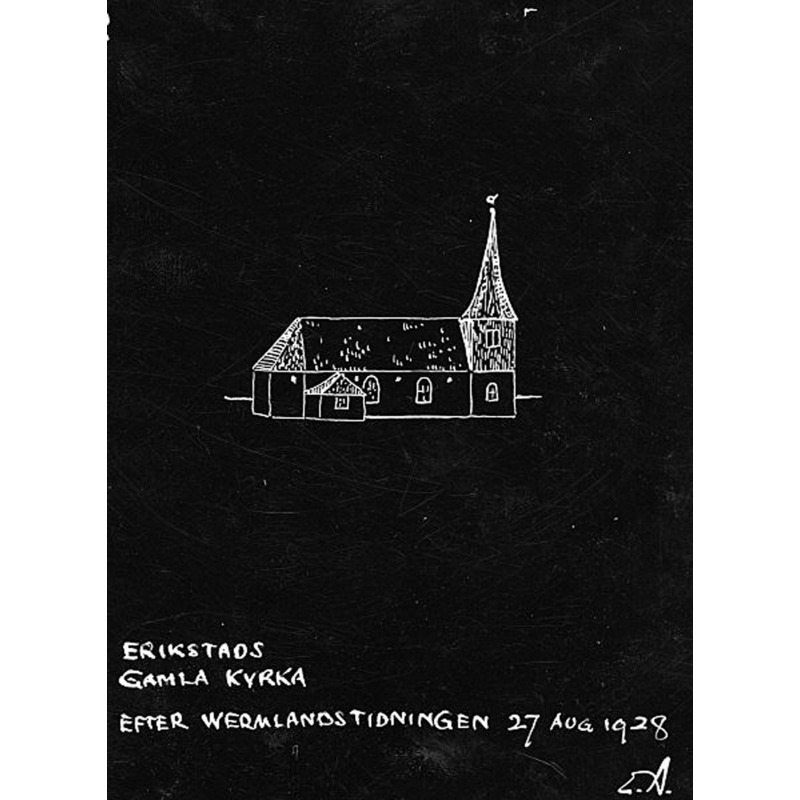 ERIKSTADS
GAMLA KYRKA
EFTER WERMLANDSTIDNINGEN 27 AUG 1928
E.A.